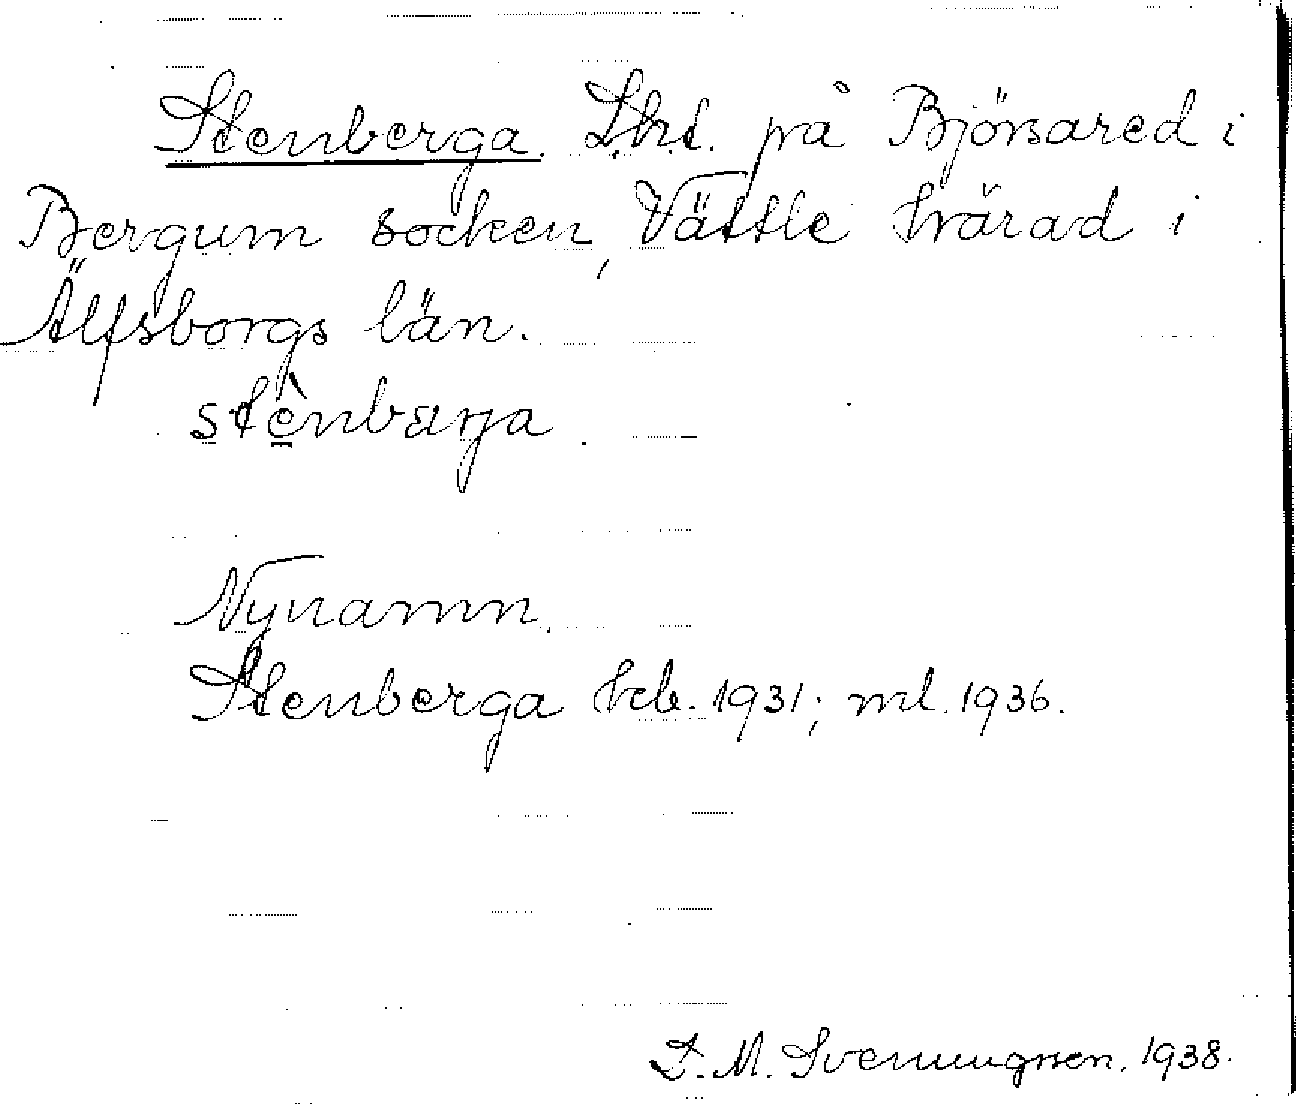 Stenberga. Lht. på Björsared i
Bergum socken, Vättle härad i
Älfsborgs län.
stènbærja.
Nynamn.
Stenberga hcb. 1931; ml. 1936.
D. M. Svenungsson. 1938.